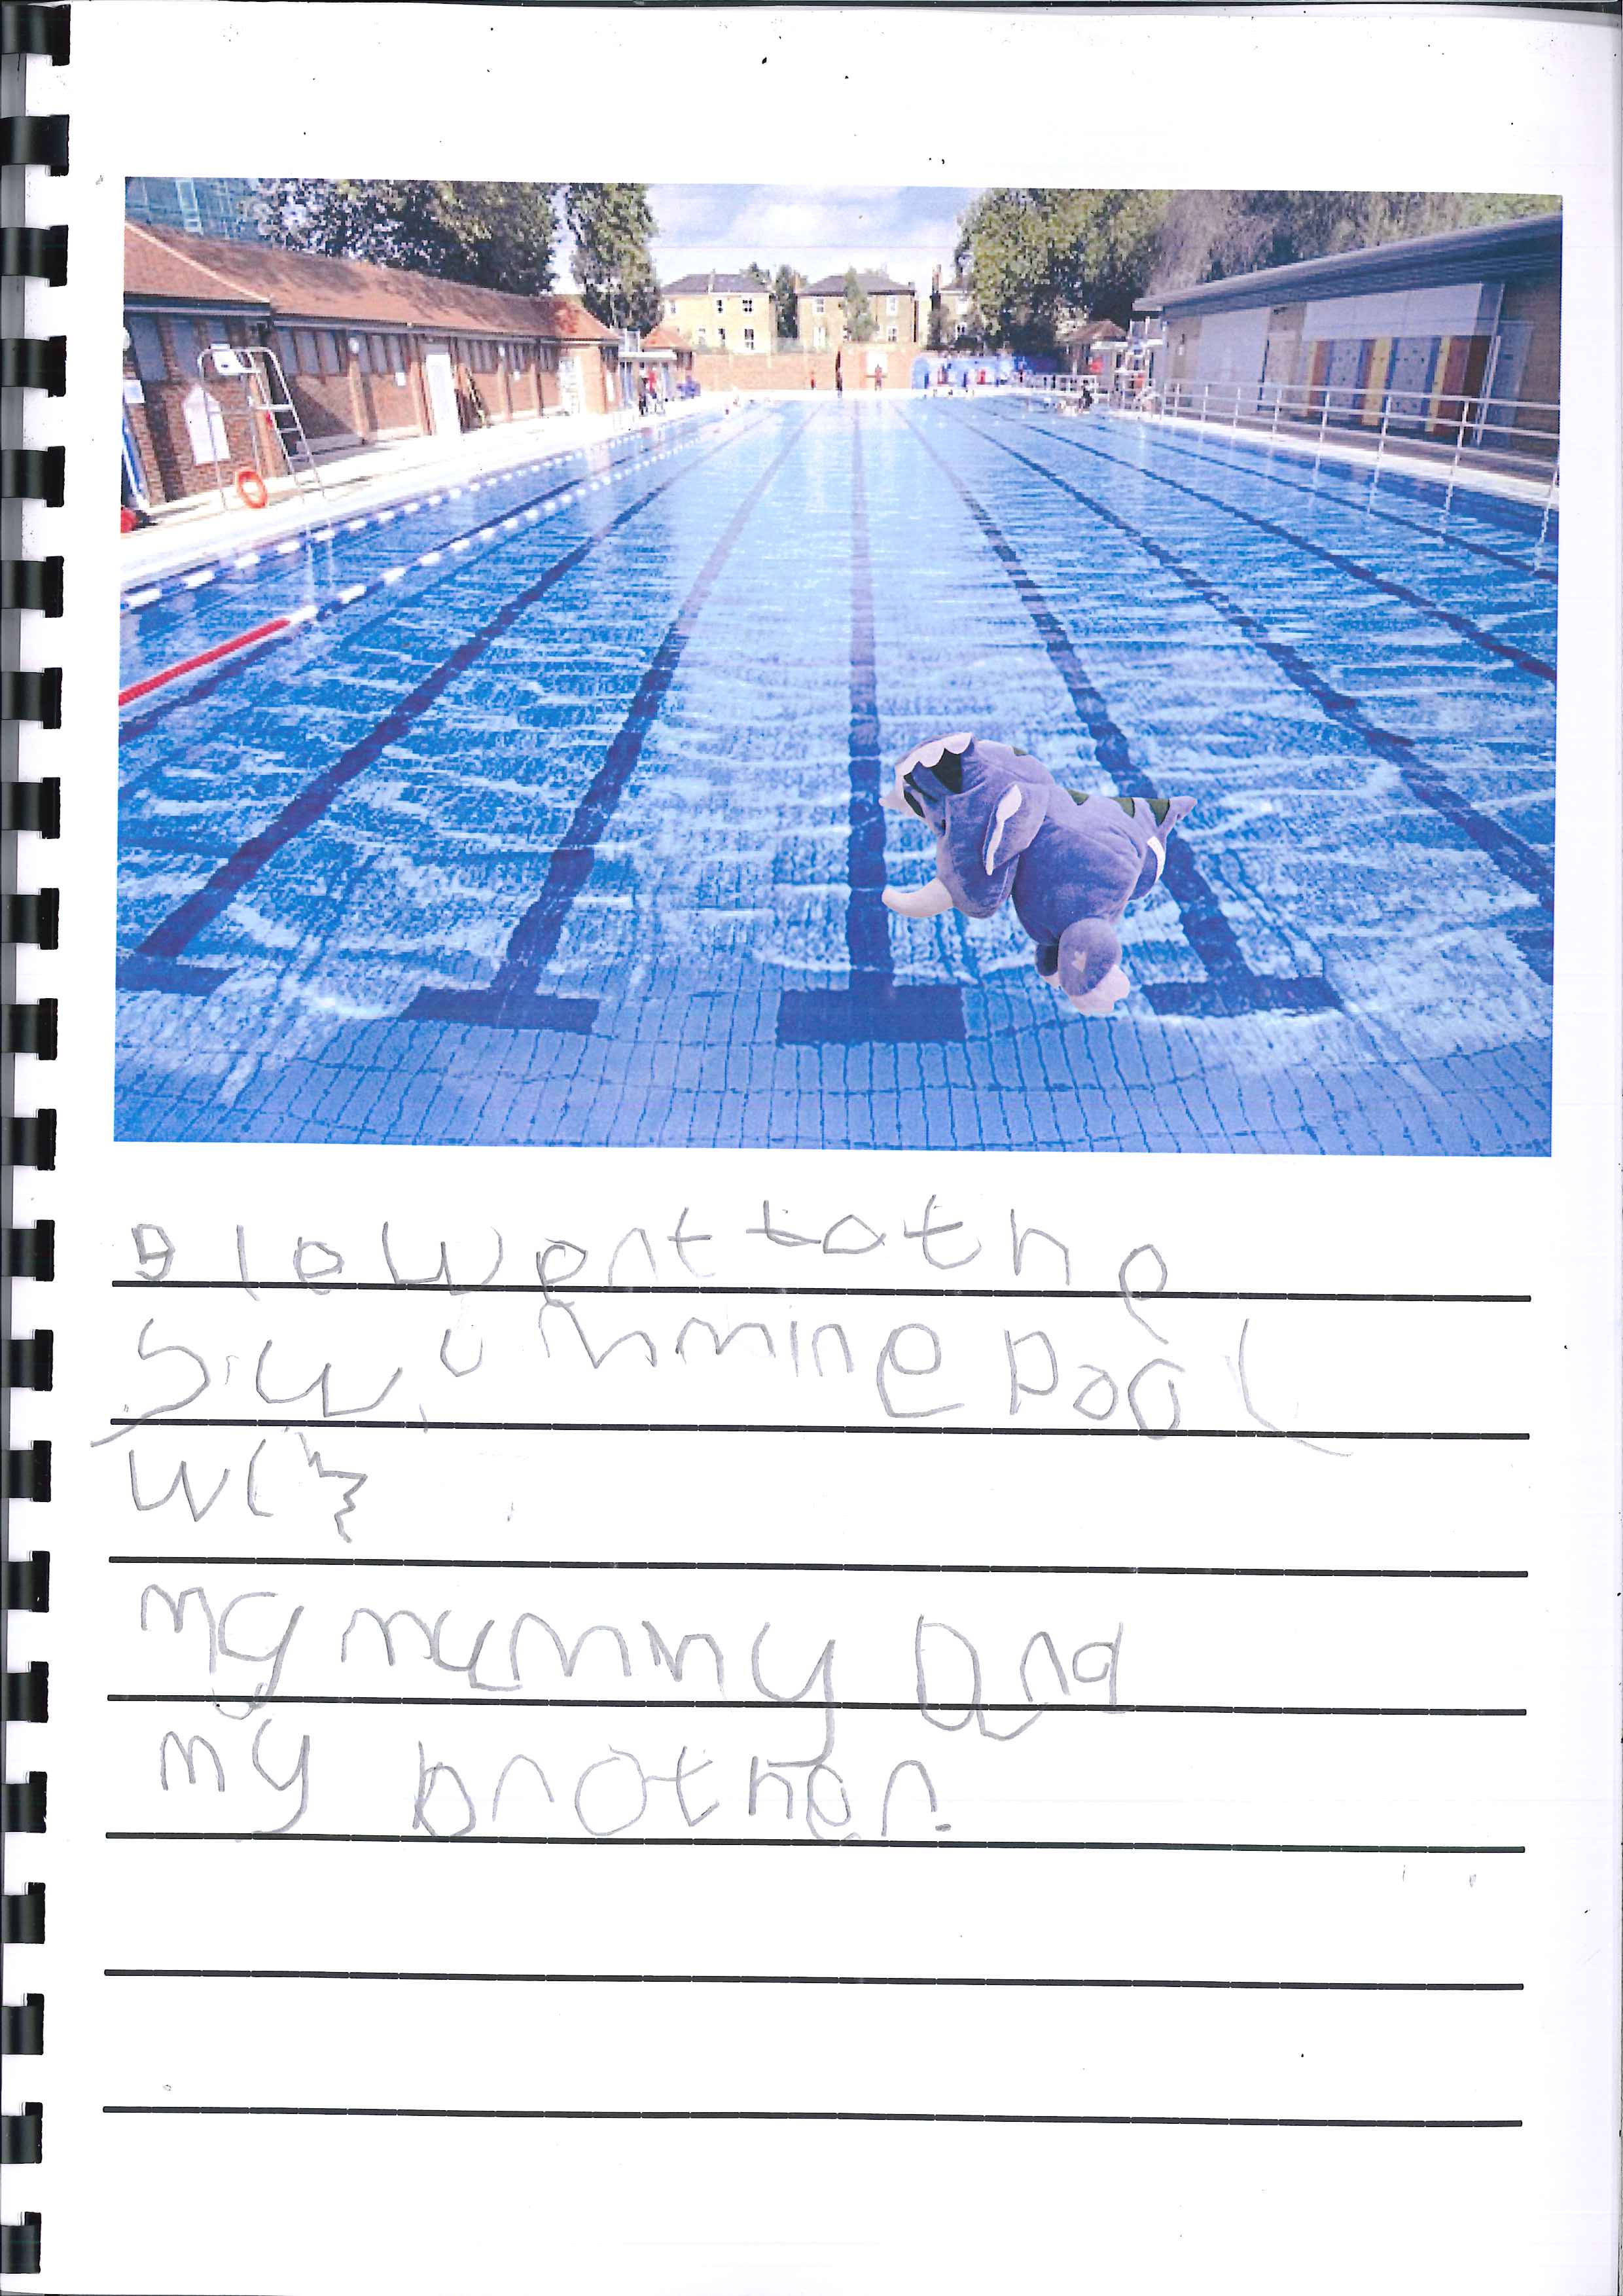 went to the
Swummine pool
my mummy and
my brother.